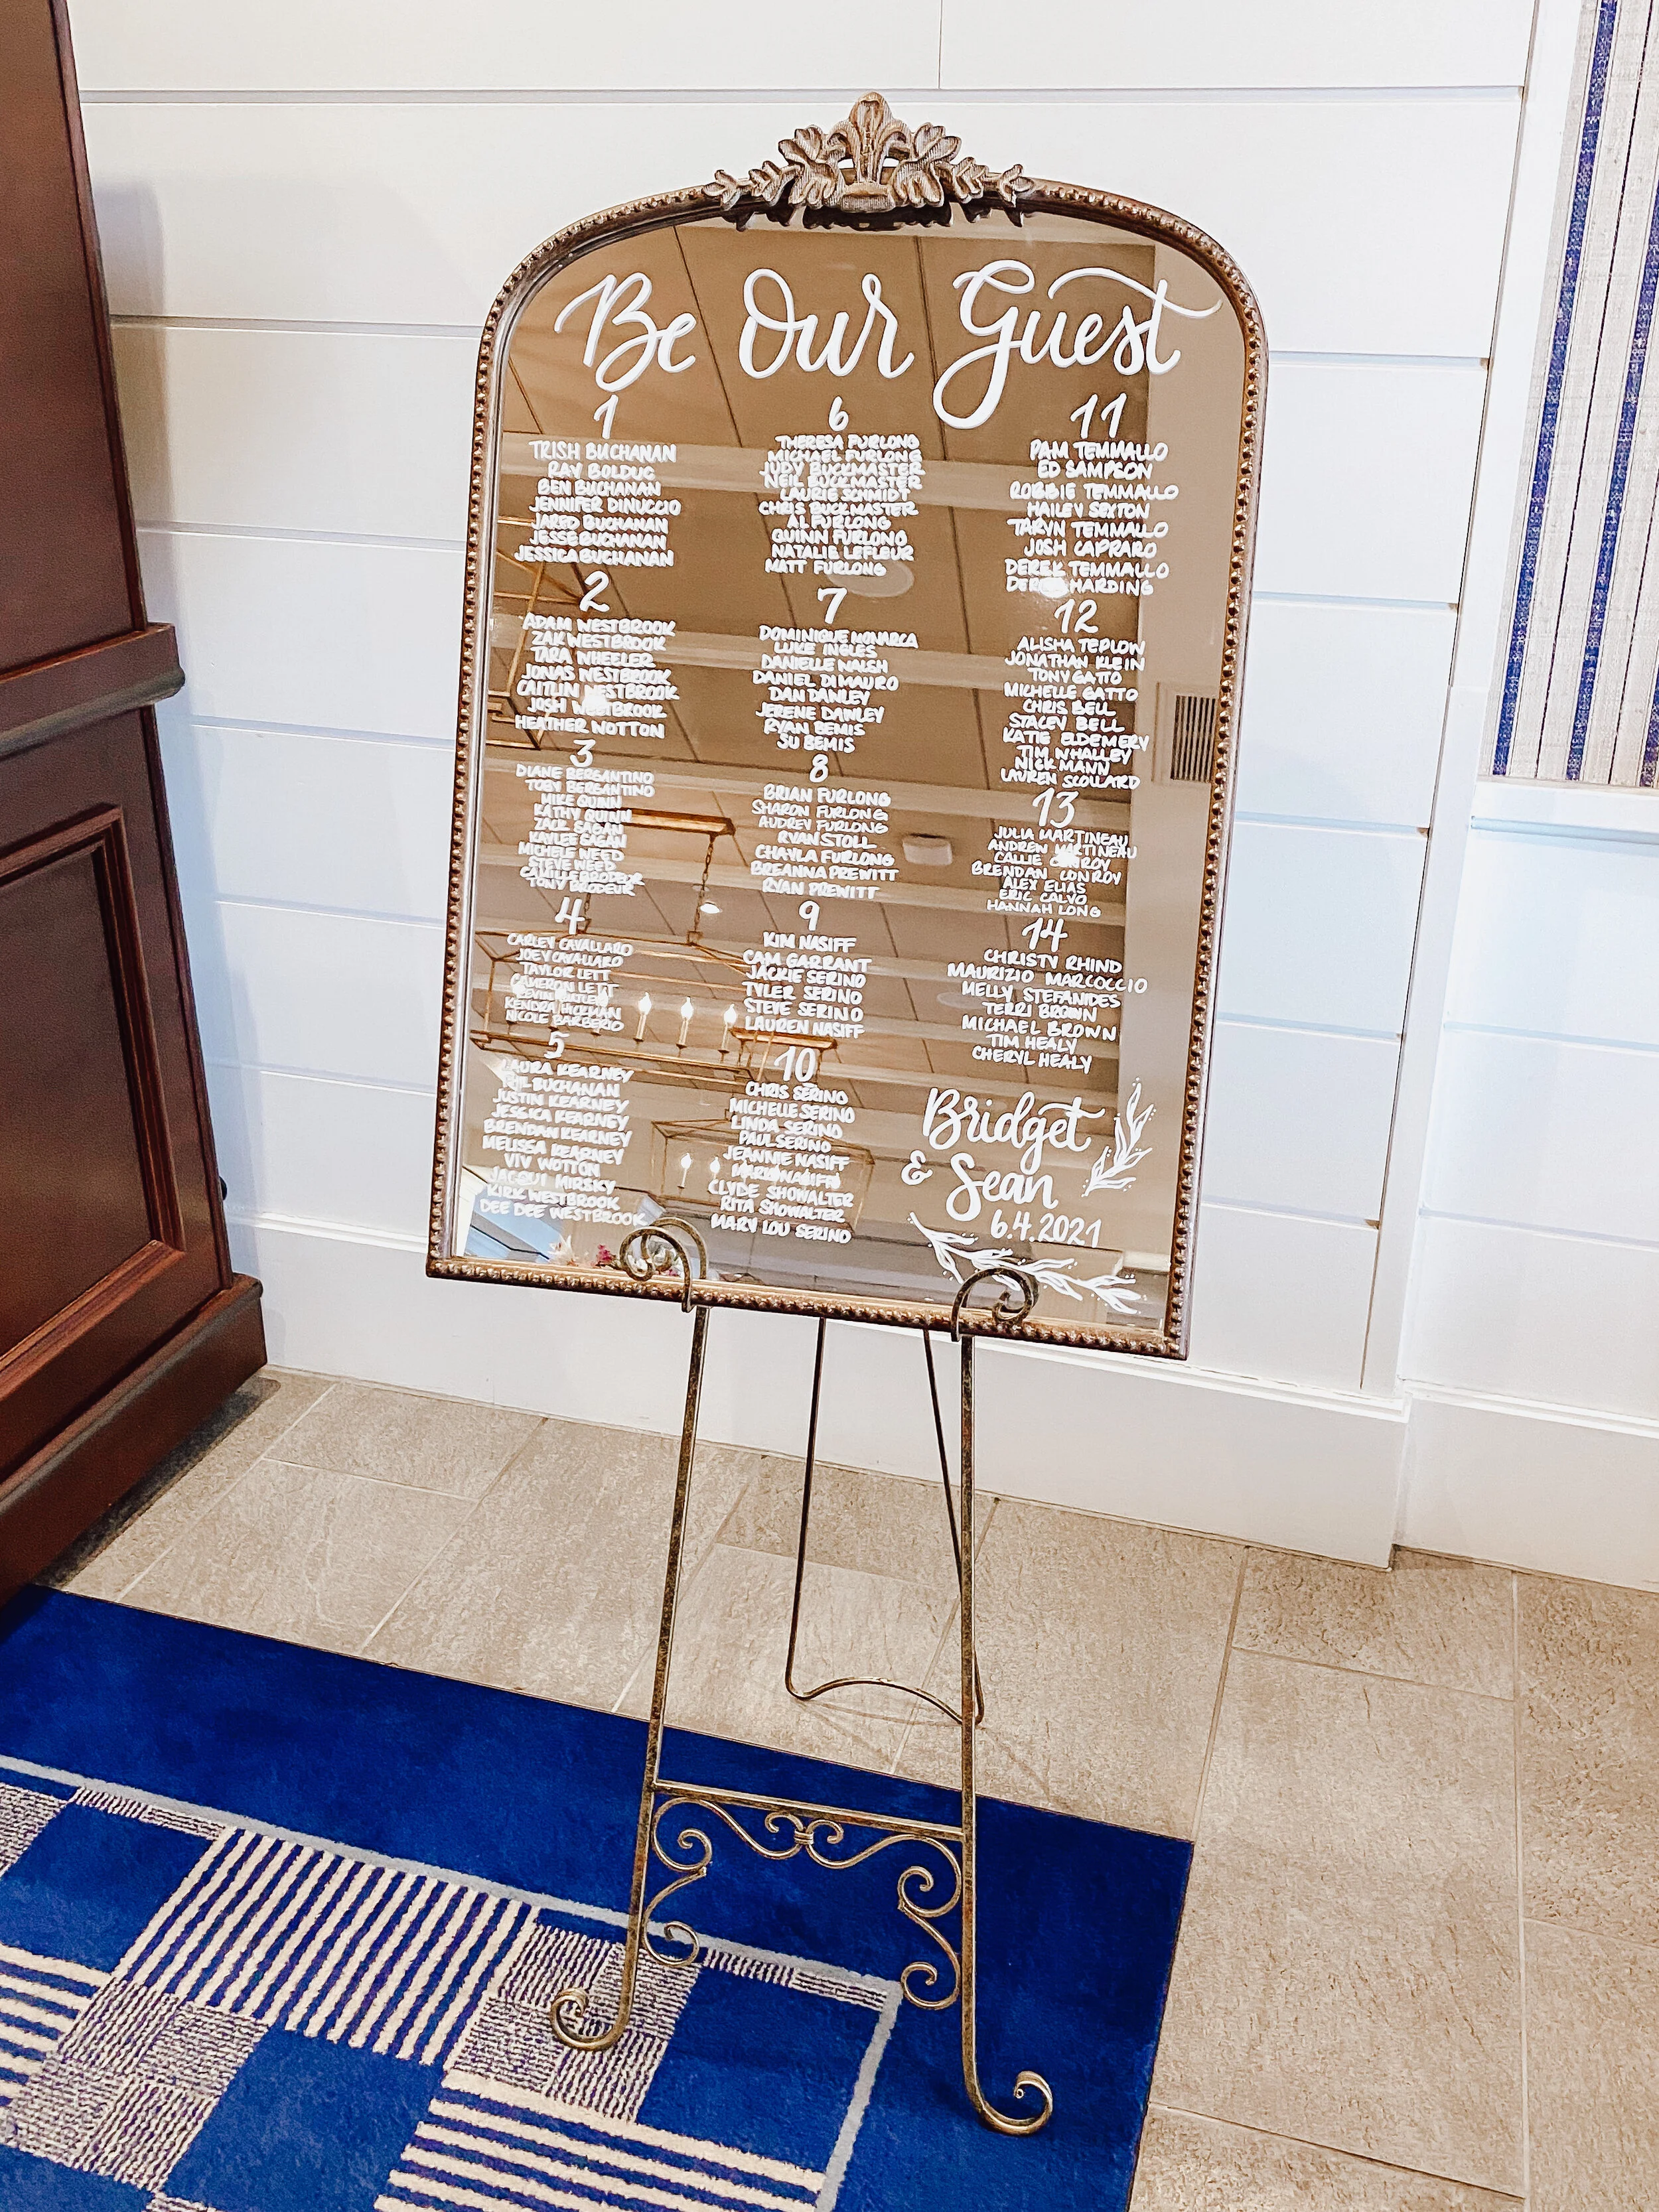 Be Our Guest
1
TRISH BUCHANAN
RAY BOLDUC
BEN BUCHANAN
JENNIFER DINUCCIO
JARED BUCHANAN
JESSE BUCHANAN
JESSICA BUCHANAN
2
ADAM WESTBROOK
ZAK WESTBROOK
TARA WHEELER
JONAS WESTBROOK
CAITLIN WESTBROOK
JOSH WESTBROOK
HEATHER WOTTON
3
DIANE BERGANTINO
TOBY BERGANTINO
MIKE QUINN
KATHY QUINN
ZACK SAGAN
KAYLEE SAGAN
MICHELE WEED
STEVE WEED
CAMILLE BRODEUR
TONY BRODEUR
4
CARLEY CAVALLARO
JOEY CAVALLARO
TAYLOR LETT
CAMERON LETT
KENDRA HICKMAN
NICOLE BARBERIO
5
LAURA KEARNEY
PHIL BUCHANAN
JUSTIN KEARNEY
JESSICA KEARNEY
BRENDAN KEARNEY
MELISSA KEARNEY
VIV WOTTON
JACQUI MIRSKY
KIRK WESTBROOK
DEE DEE WESTBROOK
6
THERESA FURLONG
MICHAEL FURLONG
JUDY BUCKMASTER
NEIL BUCKMASTER
LAURIE SCHMIDT
CHRIS BUCKMASTER
AL FURLONG
QUINN FURLONG
NATALIE LEFLEUR
MATT FURLONG
7
DOMINIQUE MONARCA
LUKE INGLES
DANIELLE WALSH
DANIEL DIMAURO
DAN DANLEY
JERENE DANLEY
RYAN BEMIS
SU BEMIS
8
BRIAN FURLONG
SHARON FURLONG
AUDREY FURLONG
RYAN STOLL
CHAYLA FURLONG
BREANNA PREWITT
RYAN PREWITT
9
KIM NASIFF
CAM GARRANT
JACKIE SERINO
TYLER SERINO
STEVE SERINO
LAUREN NASIFF
10
CHRIS SERINO
MICHELLE SERINO
LINDA SERINO
PAUL SERINO
JEANNIE NASIFF
CLYDE SHOWALTER
RITA SHOWALTER
MARY LOU SERINO
11
PAM TEMMALLO
ED SAMPSON
ROBBIE TEMMALLO
HAILEY SEXTON
TARYN TEMMALLO
JOSH CAPRARO
DEREK TEMMALLO
HARDING
12
ALISHA TEPLOW
JONATHAN KLEIN
TONY GATTO
MICHELLE GATTO
CHRIS BELL
STACEY BELL
KATIE ELDEMERY
TIM WHALLEY
NICK MANN
LAUREN SCOLLARD
13
JULIA MARTINEAU
ANDREW MARTINEAU
CALLIE CONROY
BRENDAN CONROY
ALEX ELIAS
ERIC CALVO
HANNAH LONG
14
CHRISTY RHIND
MAURIZIO MARCOCCIO
MELLY STEFANIDES
TERRI BROWN
MICHAEL BROWN
TIM HEALY
CHERYL HEALY
Bridget
& Sean
6.4.2021